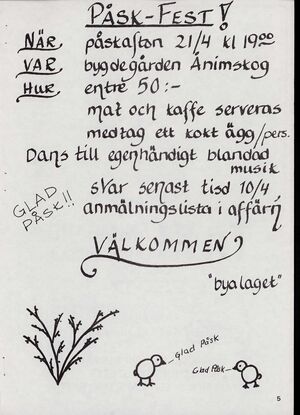 PÅSK-FEST!
NÄR påskafton 21/4 kl 19.00
VAR bygdegården Ånimskog
HUR entré 50:-
mat och kaffe serveras
medtag ett kokt ägg/pers.
Dans till egenhändigt blandad
musik
svar senast tisd 10/4
anmälningslista i affärn
GLAD
PÅSK!!
VÄLKOMMEN
"byalaget"
Glad Påsk
Glad Påsk
5